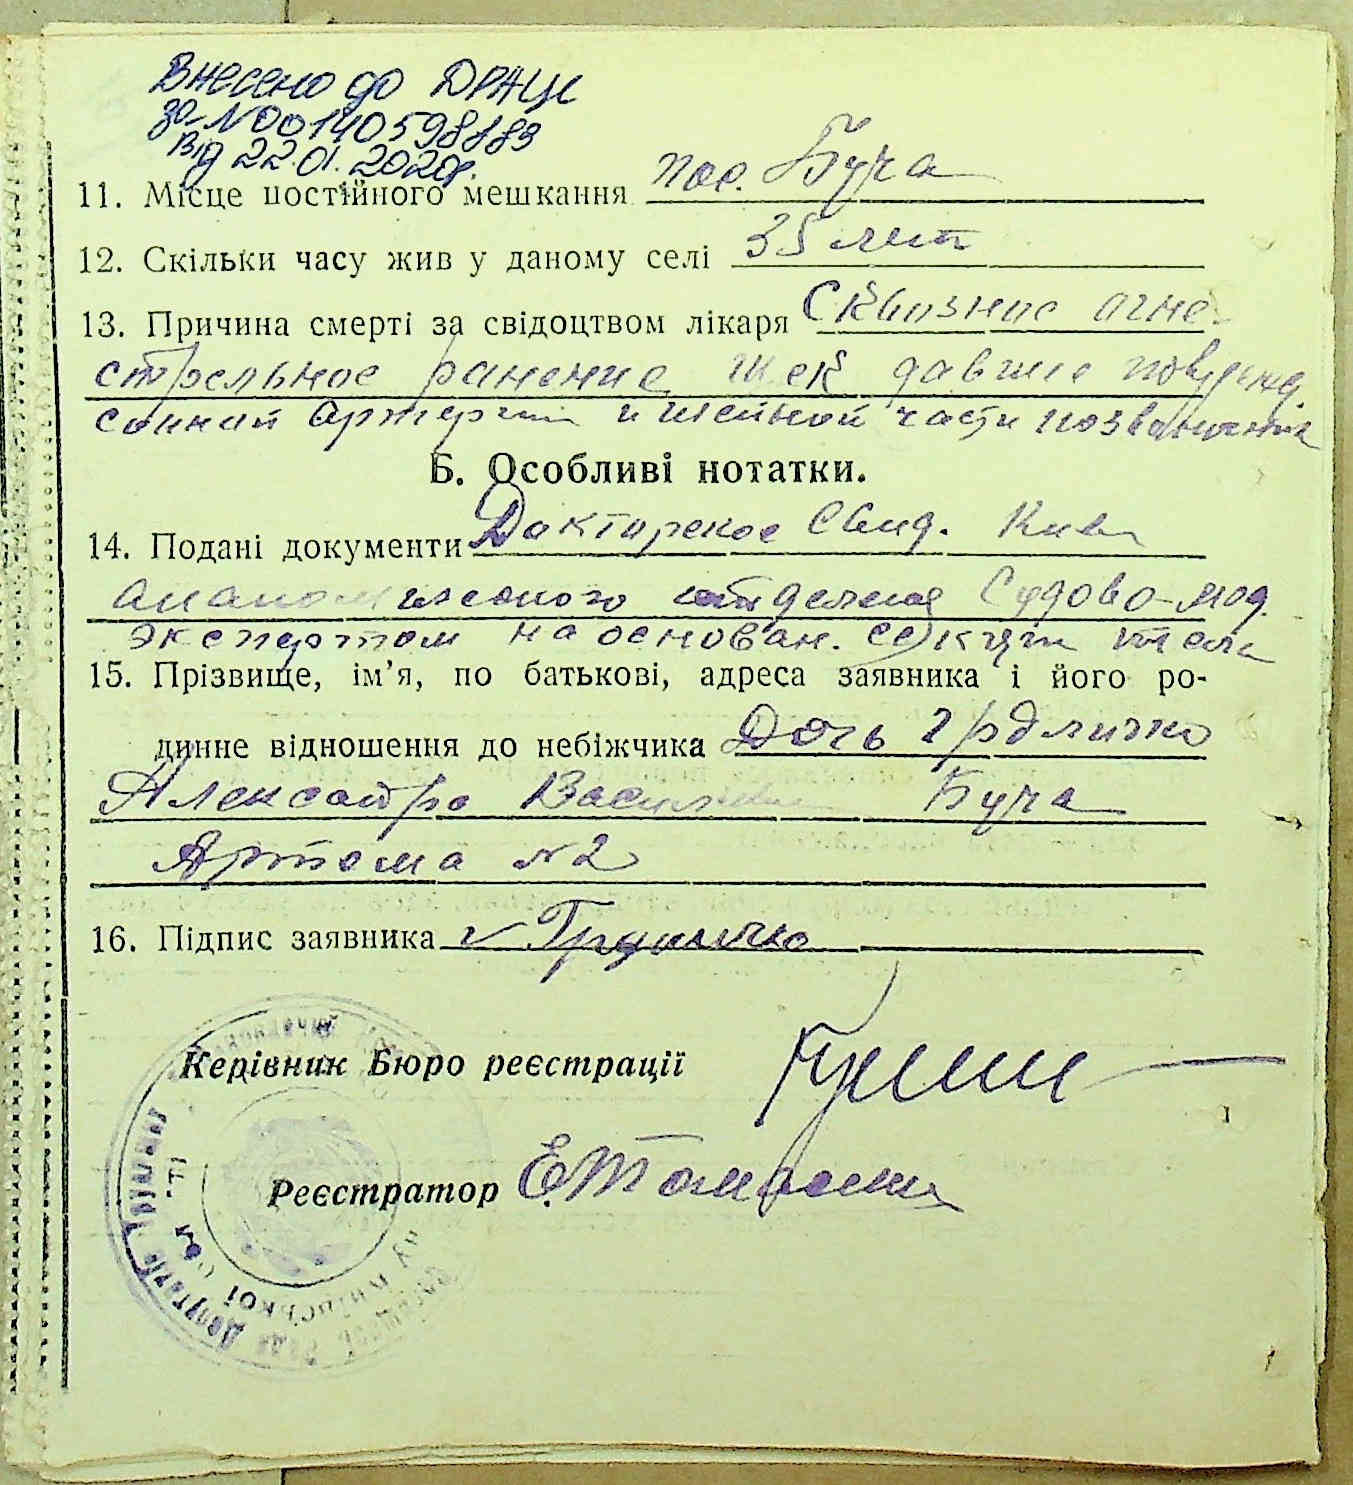 Внесено до ДРАЦС
за N00140598183
від 22.01.2020р.
11. Місце постійного мешкання пос. Буча
12. Скільки часу жив у даному селі 35 лет
13. Причина смерті за свідоцтвом лікаря Сквозное огне-
стрельное ранение шек давшее поврежд.
сонной артерии и шейной части позвоночника
Б. Особливі нотатки.
14. Подані документи Докторское Свид. Киев
отделения Судово-мед.
экспертом на основан. секции тела
15. Прізвище, ім'я, по батькові, адреса заявника і його ро-
динне відношення до небіжчика Дочь
Александра Буча
Артема N2
16. Підпис заявника
Керівник Бюро реєстрації
Реєстратор